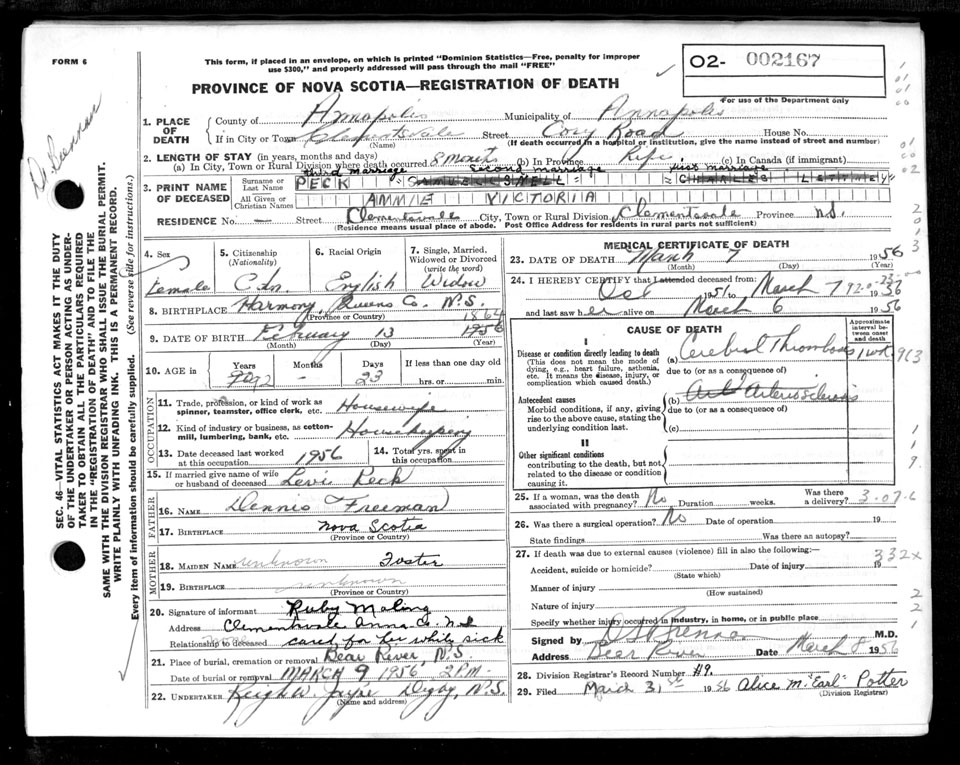 FORM 6
This form, if placed in an envelope, on which is printed "Dominion Statistics—Free, penalty for improper
use $300," and properly addressed will pass through the mail "FREE"
PROVINCE OF NOVA SCOTIA—REGISTRATION OF DEATH
O2- 002167
For use of the Department only
SEC. 46—VITAL STATISTICS ACT MAKES IT THE DUTY
OF THE UNDERTAKER OR PERSON ACTING AS UNDER-
TAKER TO OBTAIN ALL THE PARTICULARS REQUIRED
IN THE "REGISTRATION OF DEATH" AND TO FILE THE
SAME WITH THE DIVISION REGISTRAR WHO SHALL ISSUE THE BURIAL PERMIT.
WRITE PLAINLY WITH UNFADING INK. THIS IS A PERMANENT RECORD.
Every item of information should be carefully supplied. (See reverse side for instructions.)
1. PLACE OF DEATH County of Annapolis Municipality of Annapolis
If in City or Town Clementsvale Street Cory Road House No.
(Name) (If death occurred in a hospital or institution, give the name instead of street and number)
2. LENGTH OF STAY (in years, months and days)
(a) In City, Town or Rural Division where death occurred 8 months (b) In Province Life (c) In Canada (if immigrant)
third marriage second marriage first marriage
3. PRINT NAME OF DECEASED
Surname or Last Name PECK
All Given or Christian Names ANNIE VICTORIA
RESIDENCE No. — Street Clementsvale City, Town or Rural Division Clementsvale Province N.S.
(Residence means usual place of abode. Post Office Address for residents in rural parts not sufficient)
4. Sex Female
5. Citizenship (Nationality) Cdn.
6. Racial Origin English
7. Single, Married, Widowed or Divorced (write the word) Widow
8. BIRTHPLACE Harmony, Queens Co. N.S.
(Province or Country)
1864
9. DATE OF BIRTH February 13 1956
(Month) (Day) (Year)
10. AGE in Years 92 Months - Days 23 If less than one day old hrs. or min.
OCCUPATION
11. Trade, profession, or kind of work as
spinner, teamster, office clerk, etc. Housewife
12. Kind of industry or business, as cotton-
mill, lumbering, bank, etc. Housekeeping
13. Date deceased last worked at this occupation 1956
14. Total yrs. spent in this occupation
15. If married give name of wife
or husband of deceased Levi Peck
FATHER
16. Name Dennis Freeman
17. Birthplace Nova Scotia
(Province or Country)
MOTHER
18. Maiden Name unknown Foster
19. Birthplace unknown
(Province or Country)
20. Signature of informant Ruby Maling
Address Clementsvale Anna. Co. N.S.
Relationship to deceased none cared for her while sick
21. Place of burial, cremation or removal Bear River, N.S.
Date of burial or removal MARCH 9 1956 2 P.M.
22. Undertaker Digby, N.S.
(Name and address)
MEDICAL CERTIFICATE OF DEATH
23. DATE OF DEATH March 7 1956
(Month) (Day) (Year)
24. I HEREBY CERTIFY that I attended deceased from:
Oct 1951 to March 7 1956
and last saw her alive on March 6 1956
CAUSE OF DEATH
Approximate interval between onset and death
I
Disease or condition directly leading to death
(This does not mean the mode of
dying, e.g., heart failure, asthenia,
etc. It means the disease, injury, or
complication which caused death.)
(a) Cerebral Thrombosis 1 wk.
due to (or as a consequence of)
Antecedent causes
Morbid conditions, if any, giving
rise to the above cause, stating the
underlying condition last.
(b) Arteriosclerosis
due to (or as a consequence of)
(c)
II
Other significant conditions
contributing to the death, but not
related to the disease or condition
causing it.
25. If a woman, was the death
associated with pregnancy? No Duration weeks. Was there a delivery?
26. Was there a surgical operation? No Date of operation 19
State findings Was there an autopsy?
27. If death was due to external causes (violence) fill in also the following:
Accident, suicide or homicide? Date of injury 19
(State which)
Manner of injury
(How sustained)
Nature of injury
Specify whether injury occurred in industry, in home, or in public place
332x
Signed by Brennan M.D.
Address Bear River Date March 8 1956
28. Division Registrar's Record Number #9.
29. Filed March 31st 1956 Alice M. "Earl" Potter
(Division Registrar)